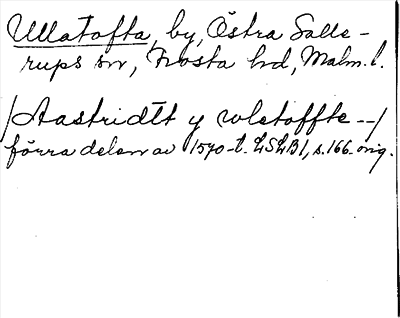 Ullatofta, by, Östra Salle-
rups sn, Frosta hd, Malm. l.
/Aastridtt y wletoffte --/
förra delen av 1570-t. LSLB1, s.166. orig.